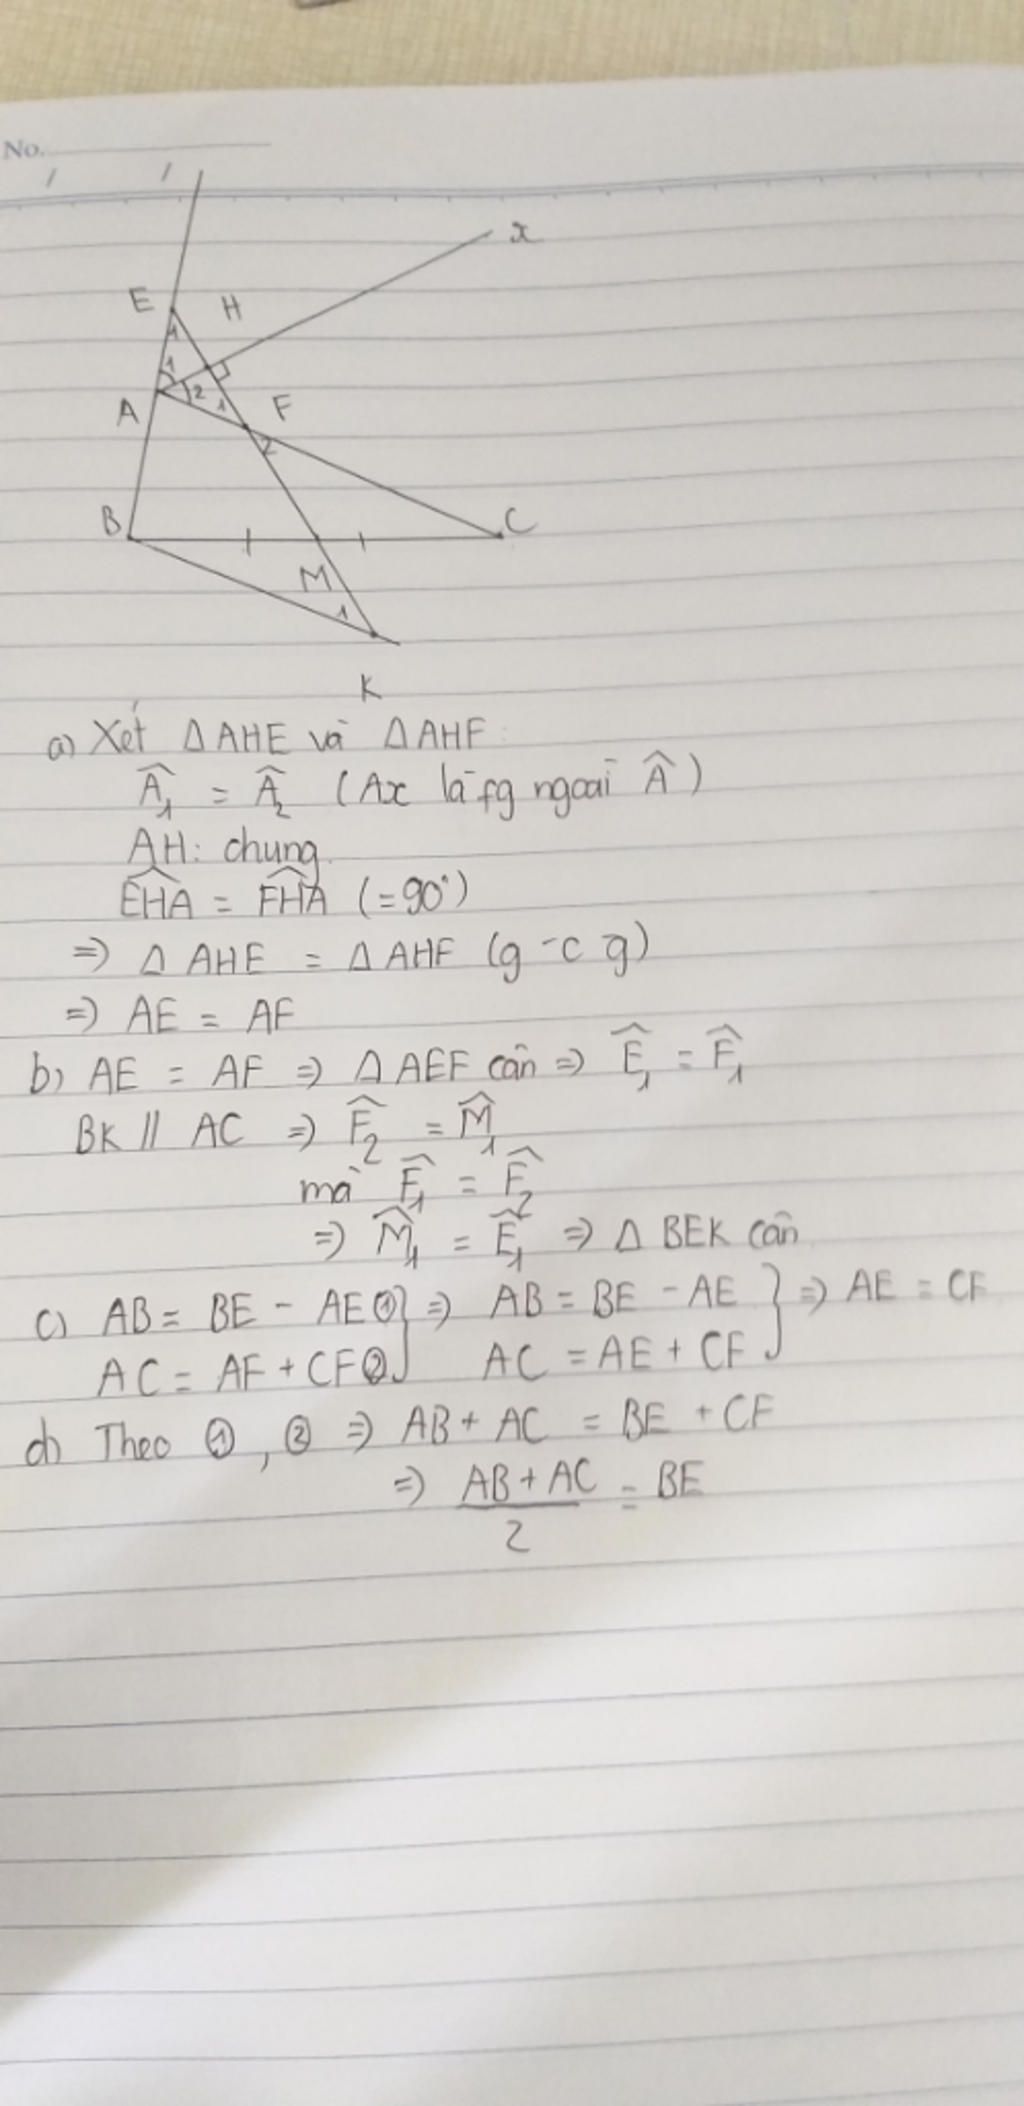 No.
x
E H
1
1
2
1
A F
2
B C
M
1
K
a) Xét △AHE và △AHF:
Â₁ = Â₂ (Ax là fg ngoài Â)
AH: chung.
EHA = FHA (=90°)
=) △ AHE = △ AHF (g-c g)
=) AE = AF
b) AE = AF =) △ AEF cân =) Ê₁ = F̂₁
BK // AC =) F̂₂ = M̂₁
mà F̂₁ = F̂₂
=) M̂₁ = Ê₁ =) △ BEK cân
c) AB = BE - AE ① } =) AB = BE - AE } =) AE = CF
AC = AF + CF ② AC = AE + CF
d) Theo ①, ② =) AB + AC = BE + CF
=) AB + AC = BE
2